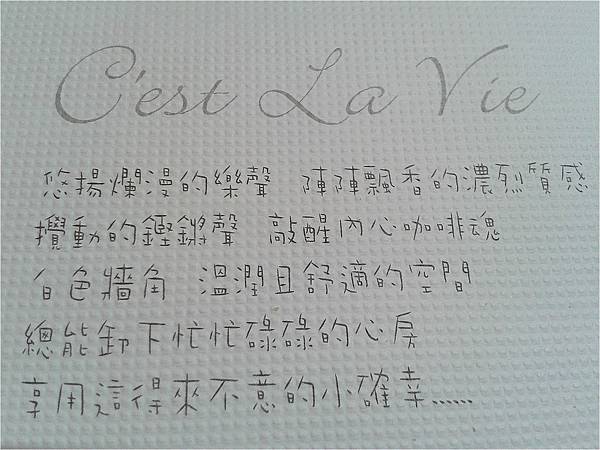 C'est La Vie
悠揚爛漫的樂聲 陣陣飄香的濃烈質感
攪動的鏗鏘聲 敲醒內心咖啡魂
白色牆角 溫潤且舒適的空間
總能卸下忙忙碌碌的心房
享用這得來不意的小確幸......